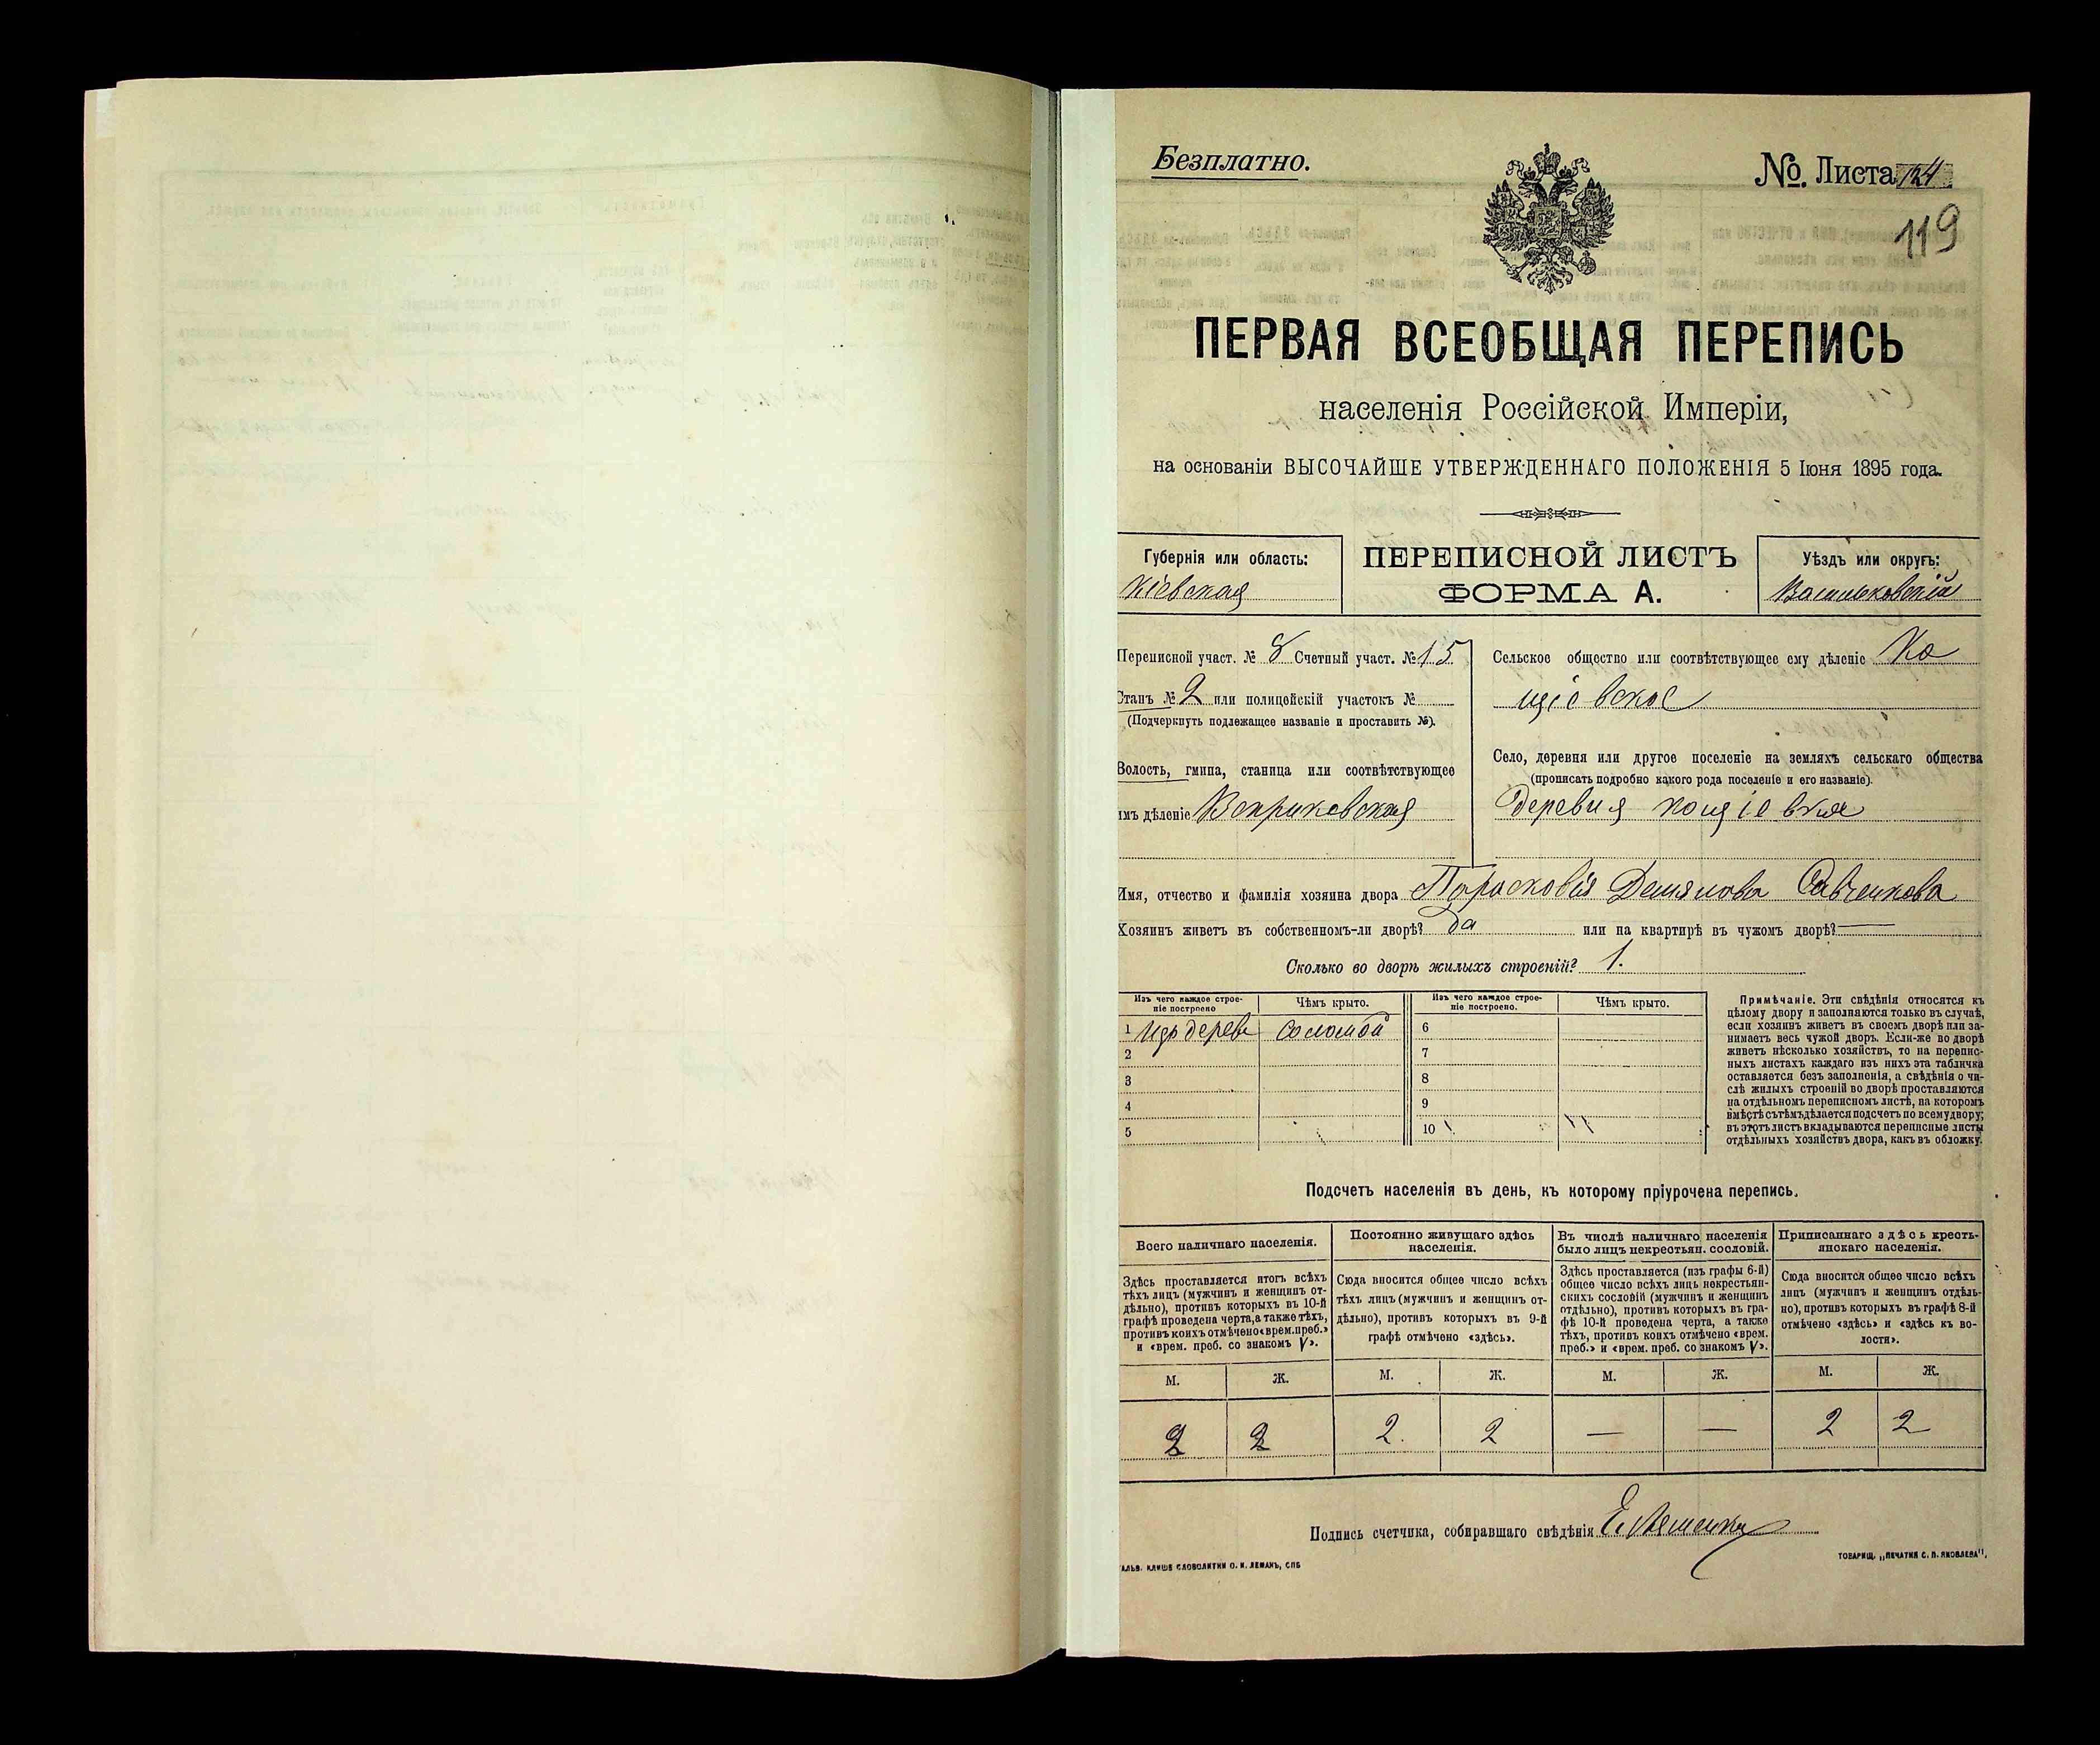 Безплатно.
№. Листа 124
119
ПЕРВАЯ ВСЕОБЩАЯ ПЕРЕПИСЬ
населенія Россійской Имперіи,
на основаніи ВЫСОЧАЙШЕ УТВЕРЖДЕННАГО ПОЛОЖЕНІЯ 5 Іюня 1895 года.
Губернія или область:
Кіевская
ПЕРЕПИСНОЙ ЛИСТЪ
ФОРМА А.
Уѣздъ или округъ:
Васильковскій
Переписной участ. № 8 Счетный участ. № 15
Станъ № 2 или полицейскій участокъ №
(Подчеркнуть подлежащее названіе и проставить №).
Волость, гмина, станица или соотвѣтствующее
имъ дѣленіе Веприковская
Сельское общество или соотвѣтствующее ему дѣленіе Ко
щіевское
Село, деревня или другое поселеніе на земляхъ сельскаго общества
(прописать подробно какого рода поселеніе и его названіе).
деревня Кощіевка
Имя, отчество и фамилія хозяина двора Парасковія Демянова Савченкова
Хозяинъ живетъ въ собственномъ-ли дворѣ? да или на квартирѣ въ чужомъ дворѣ? —
Сколько во дворѣ жилыхъ строеній? 1.
Изъ чего каждое строе-
ніе построено
Чѣмъ крыто.
Изъ чего каждое строе-
ніе построено.
Чѣмъ крыто.
1 изъ дерева соломой
2
3
4
5
6
7
8
9
10
Примѣчаніе. Эти свѣдѣнія относятся къ
цѣлому двору и заполняются только въ случаѣ,
если хозяинъ живетъ въ своемъ дворѣ или за-
нимаетъ весь чужой дворъ. Если-же во дворѣ
живетъ нѣсколько хозяйствъ, то на перепис-
ныхъ листахъ каждаго изъ нихъ эта табличка
оставляется безъ заполненія, а свѣдѣнія о чи-
слѣ жилыхъ строеній во дворѣ проставляются
на отдѣльномъ переписномъ листѣ, на которомъ
вмѣстѣ съ тѣмъ дѣлается подсчетъ по всему двору;
въ этотъ листъ вкладываются переписные листы
отдѣльныхъ хозяйствъ двора, какъ въ обложку.
Подсчетъ населенія въ день, къ которому пріурочена перепись.
Всего наличнаго населенія.
Здѣсь проставляется итогъ всѣхъ
тѣхъ лицъ (мужчинъ и женщинъ от-
дѣльно), противъ которыхъ въ 10-й
графѣ проведена черта, а также тѣхъ,
противъ коихъ отмѣчено «врем. преб.»
и «врем. преб. со знакомъ V».
Постоянно живущаго здѣсь
населенія.
Сюда вносится общее число всѣхъ
тѣхъ лицъ (мужчинъ и женщинъ от-
дѣльно), противъ которыхъ въ 9-й
графѣ отмѣчено «здѣсь».
Въ числѣ наличнаго населенія
было лицъ некрестьян. сословій.
Здѣсь проставляется (изъ графы 6-й)
общее число всѣхъ лицъ некрестьян-
скихъ сословій (мужчинъ и женщинъ
отдѣльно), противъ которыхъ въ гра-
фѣ 10-й проведена черта, а также
тѣхъ, противъ коихъ отмѣчено «врем.
преб.» и «врем. преб. со знакомъ V».
Приписаннаго здѣсь кресть-
янскаго населенія.
Сюда вносится общее число всѣхъ
лицъ (мужчинъ и женщинъ отдѣль-
но), противъ которыхъ въ графѣ 8-й
отмѣчено «здѣсь» и «здѣсь къ во-
лости».
М. Ж. М. Ж. М. Ж. М. Ж.
2 2 2 2 — — 2 2
Подпись счетчика, собиравшаго свѣдѣнія
ГАЛЬВ. КЛИШЕ СЛОВОЛИТНИ О. И. ЛЕМАНЪ, СПБ
ТОВАРИЩ. „ПЕЧАТНЯ С. П. ЯКОВЛЕВА".